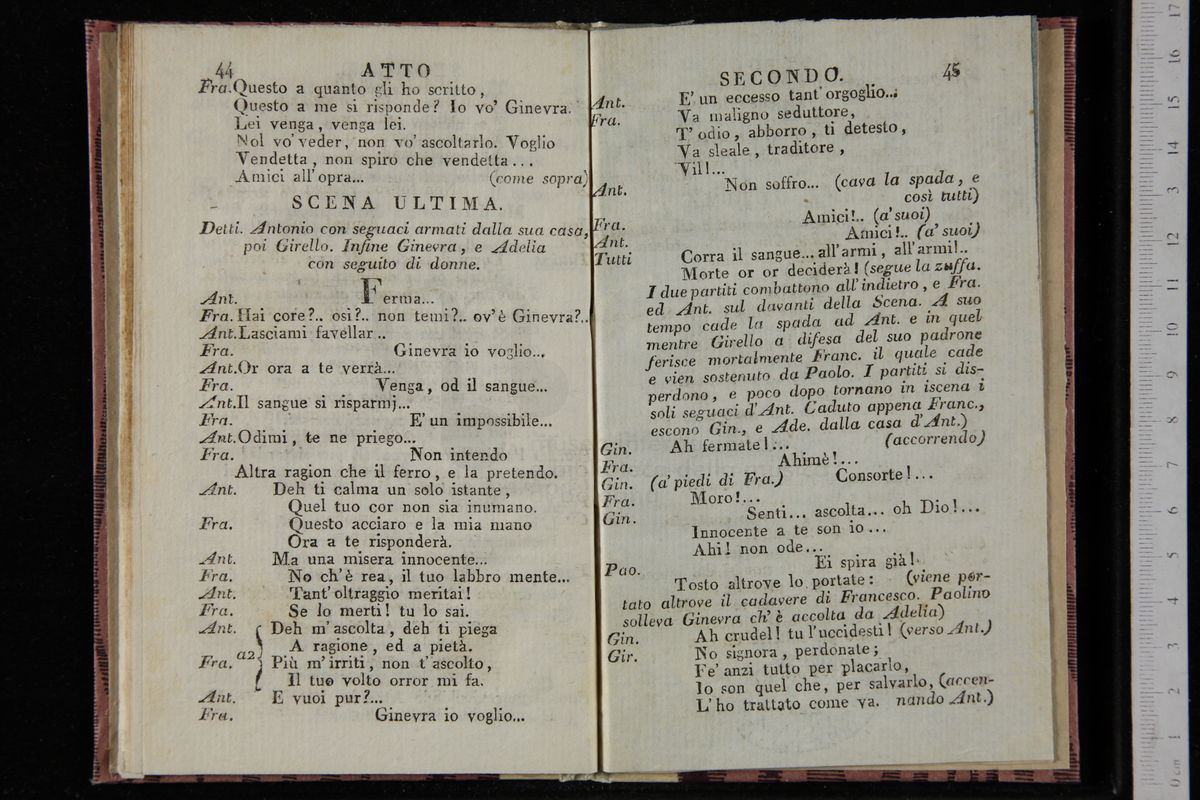 44 ATTO
Fra. Questo a quanto gli ho scritto,
Questo a me si risponde? Io vo' Ginevra.
Lei venga, venga lei.
Nol vo' veder, non vo' ascoltarlo. Voglio
Vendetta, non spiro che vendetta...
Amici all'opra... (come sopra)
SCENA ULTIMA.
Detti. Antonio con seguaci armati dalla sua casa,
poi Girello. Infine Ginevra, e Adelia
con seguito di donne.
Ant. Ferma...
Fra. Hai core?.. osi?.. non temi?.. ov'è Ginevra?..
Ant. Lasciami favellar..
Fra. Ginevra io voglio...
Ant. Or ora a te verrà...
Fra. Venga, od il sangue...
Ant. Il sangue si risparmj...
Fra. E' un impossibile...
Ant. Odimi, te ne priego...
Fra. Non intendo
Altra ragion che il ferro, e la pretendo.
Ant. Deh ti calma un solo istante,
Quel tuo cor non sia inumano.
Fra. Questo acciaro e la mia mano
Ora a te risponderà.
Ant. Ma una misera innocente...
Fra. No ch'è rea, il tuo labbro mente...
Ant. Tant' oltraggio meritai!
Fra. Se lo merti! tu lo sai.
Ant. Deh m'ascolta, deh ti piega
A ragione, ed a pietà.
a2
Fra. Più m'irriti, non t'ascolto,
Il tuo volto orror mi fa.
Ant. E vuoi pur?...
Fra. Ginevra io voglio...
SECONDO. 45
Ant. E' un eccesso tant' orgoglio...
Fra. Va maligno seduttore,
T' odio, abborro, ti detesto,
Va sleale, traditore,
Vil!...
Ant. Non soffro... (cava la spada, e
così tutti)
Fra. Amici!.. (a' suoi)
Ant. Amici!.. (a' suoi)
Tutti Corra il sangue... all'armi, all'armi!..
Morte or or deciderà! (segue la zuffa.
I due partiti combattono all'indietro, e Fra.
ed Ant. sul davanti della Scena. A suo
tempo cade la spada ad Ant. e in quel
mentre Girello a difesa del suo padrone
ferisce mortalmente Franc. il quale cade
e vien sostenuto da Paolo. I partiti si dis-
perdono, e poco dopo tornano in iscena i
soli seguaci d'Ant. Caduto appena Franc.,
escono Gin., e Ade. dalla casa d'Ant.)
Gin. Ah fermate!... (accorrendo)
Fra. Ahimè!...
Gin. (a' piedi di Fra.) Consorte!...
Fra. Moro!...
Gin. Senti... ascolta... oh Dio!...
Innocente a te son io...
Ahi! non ode...
Pao. Ei spira già!
Tosto altrove lo portate: (viene por-
tato altrove il cadavere di Francesco. Paolino
solleva Ginevra ch'è accolta da Adelia)
Gin. Ah crudel! tu l'uccidesti! (verso Ant.)
Gir. No signora, perdonate;
Fe' anzi tutto per placarlo,
Io son quel che, per salvarlo, (accen-
L'ho trattato come va. nando Ant.)
0 cm 1 2 3 4 5 6 7 8 9 10 11 12 13 14 15 16 17